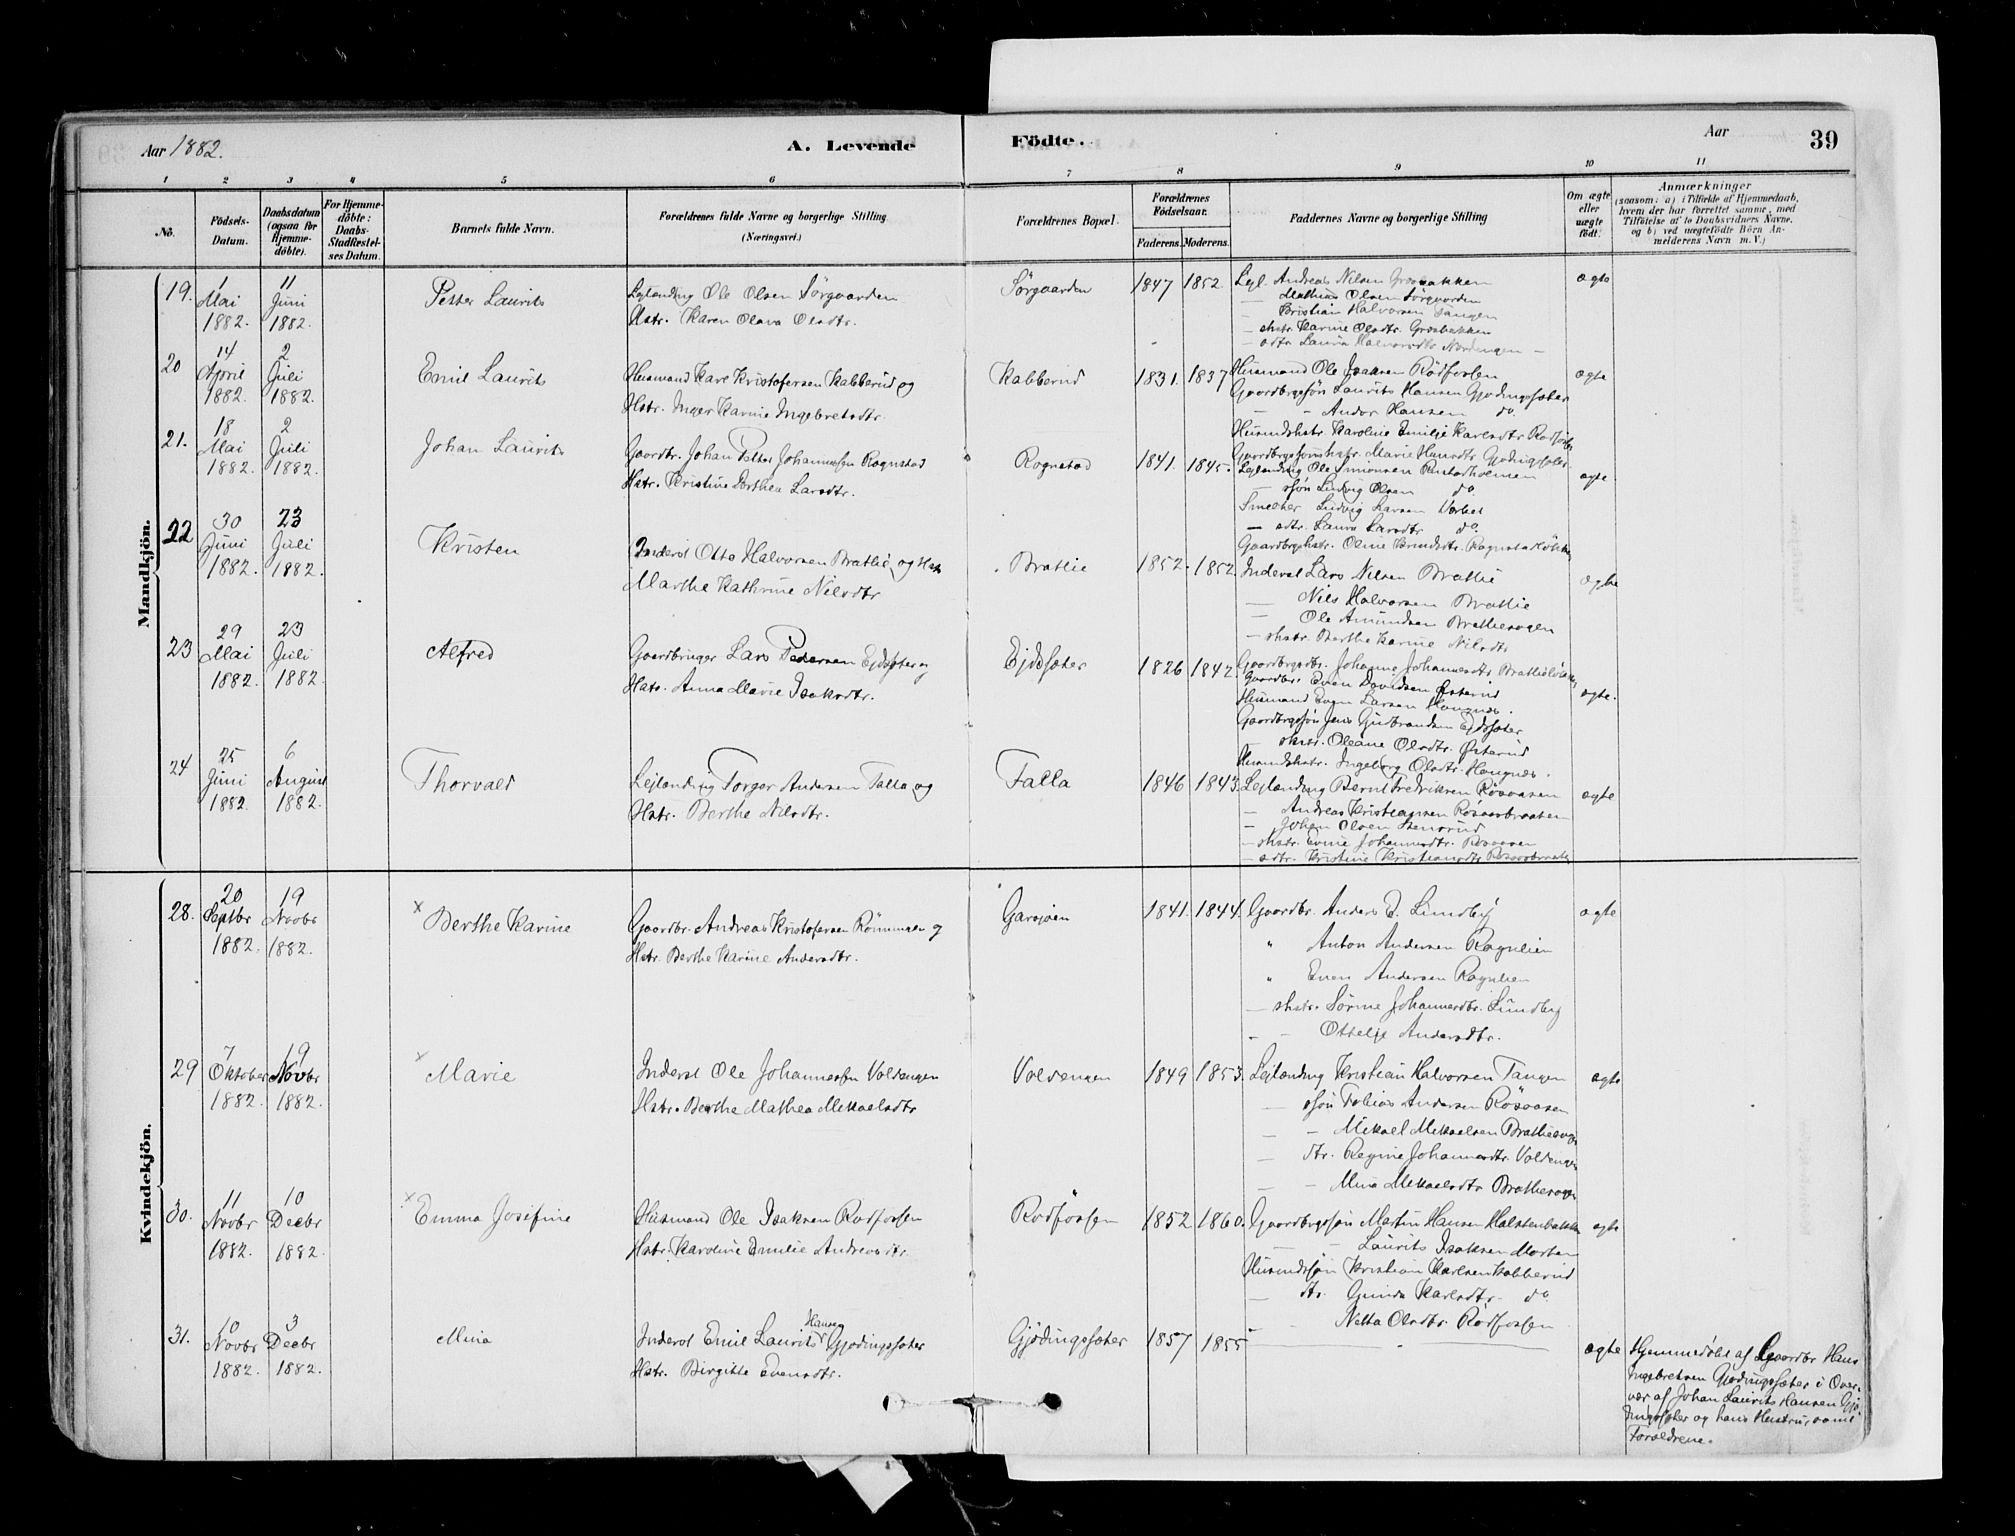 Aar 1882. A. Levende Födte. Aar 39
1 2 3 4 5 6 7 8 9 10 11
No. Födsels-Datum. Daabsdatum (ogsaa for Hjemmedöbte). For Hjemmedöbte: Daabs-Stadfæstelses Datum. Barnets fulde Navn. Forældrenes fulde Navne og borgerlige Stilling (Næringsvei.) Forældrenes Bopæl. Forældrenes Födselsaar. Faderens. Moderens. Faddernes Navne og borgerlige Stilling Om ægte eller uægte födt. Anmærkninger
(saasom: a) i Tilfælde af Hjemmedaab,
hvem der har forrettet samme, med
Tilföielse af to Daabsvidners Navne,
og b) ved uægtefödte Börn Anmelderens Navn m. V.)
Mandkjön.
19. 1 Mai 1882. 11 Juni 1882. Petter Laurits
Lejlænding Ole Olsen Sørgaarden
Hstr. Karen Olava Olsdtr.
Sørgaarden 1847 1852
Lejl. Andreas Nilsen Grosbakken
— Mathias Olsen Sørgaarden
— Kristian Halvorsen Tangen
— shstr. Karine Olsdtr. Grosbakken
— sdtr. Laura Halvorsdtr.
ægte
20 14 April 1882. 2 Juli 1882. Emil Laurits
Husmand Karl Kristofersen Kabberud og
Hstr. Inger Karine Ingebretsdtr.
Kabberud 1831. 1837
Husmand Ole Isaksen Rödfossen
Gaardbrgssøn Laurits Hansen Gjødingsæter
— - Andor Hansen do.
Husmdshstr. Karoline Emilje Karlsdtr.
Gaardbrgssønshstr. Marie Hansdtr.
ægte
21. 18 Mai 1882. 2 Juli 1882. Johan Laurits
Gaardbr. Johan Petter Johannessen Rognstad
Hstr. Kristine Dorthea Larsdtr.
Rognstad 1841. 1845.
Lejlænding Ole Simonsen Rustadholmen
— søn Ludvig Olsen do.
Ludvig Larsen
— sdtr. Laura Larsdtr. do.
Gaardbrgshstr. Oline
ægte
22 30 Juni 1882. 23 Juli 1882. Kristen
Inderst Otto Halvorsen Bratlie og Hstr
Marthe Kathrine Nilsdtr
Bratlie 1852. 1852.
Inderst Lars Nilsen Bratlie
— Nils Halvorsen Bratlie
— Ole Amundsen Bratliesagen
— shstr. Berthe Karine Nilsdtr
Gaardbrgsdtr. Johanne Johannesdtr.
ægte
23 29 Mai 1882. 23 Juli 1882. Alfred
Gaardbruger Lars Pedersen Ejdssæter og
Hstr. Anna Marie Isaksdtr.
Ejdssæter 1826 1842.
Gaardbr. Even Davidsen Østerud
Husmand Even Larsen Haugnæs.
Gaardbrgssøn Jens Gudbrandsen Ejdssæter
— shstr. Oleane Olsdtr. Østerud
Husmdshstr. Ingeborg Olsdtr. Haugnæs.
ægte.
24 25 Juni 1882. 6 August 1882. Thorvald
Lejlænding Torger Andersen Falla og
Hstr. Berthe Nilsdtr.
Falla 1846 1843.
Lejlænding Bernt Fredriksen Røsaasen
— Andreas Kristiansen Røsaasbraaten
— Johan Olsen
— shstr. Evine Johannesdtr. Røsaasen
— sdtr. Kristine Kristiansdtr.
ægte
Kvindekjön.
28. 20 Septbr 1882. 19 Novbr 1882. x Berthe Karine
Gaardbr. Andreas Kristofersen Rönningen og
Hstr. Berthe Karine Andersdtr.
Garsjøen 1841. 1844.
Gaardbr. Anders E. Lundby
" Anton Andersen Rognlien
" Even Andersen Rognlien
— shstr. Sørine Johannesdtr. Lundby
- - Ottelje Andersdtr.
ægte
29 7 Oktober 1882. 19 Novbr 1882. x Marie
Inderst Ole Johannessen Voldengen
Hstr. Berthe Mathea Mikaelsdtr
Voldengen 1849 1853.
Lejlænding Kristian Halvorsen Tangen
— søn Tobias Andersen Røsaasen
— - Mikael Mikaelsen Bratliesagen
— dtr. Regine Johannesdtr. Voldengen
— - Mina Mikaelsdtr Bratliesagen
ægte
30. 11 Novbr 1882. 10 Decbr 1882. x Emma Josefine
Husmand Ole Isaksen Rodfossen
Hstr. Karoline Emilie Andreasdtr.
Rodfossen 1852 1860.
Gaardbrgssøn Martin Hansen Halstenbakken
— - Laurits Isaksen
Husmdssøn Kristian Karlsen Kabberud
— dtr. Gunda Karlsdtr. do.
- - Netta Olsdtr. Rödfossen
ægte
31. 10 Novbr 1882. 3 Decbr 1882. Mina
Inderst Emil Laurits Hansen Gjødingssæter
Hstr. Birgitte Evensdtr.
Gjødingssæter 1857 1855
ægte
Hjemmedøbt af Gaardbr Hans
Ingebretsen Gjødingssæter i Over-
vær af Johan Laurits Hansen Gjø-
dingssæter og hans Hustru, samt
Forældrene.